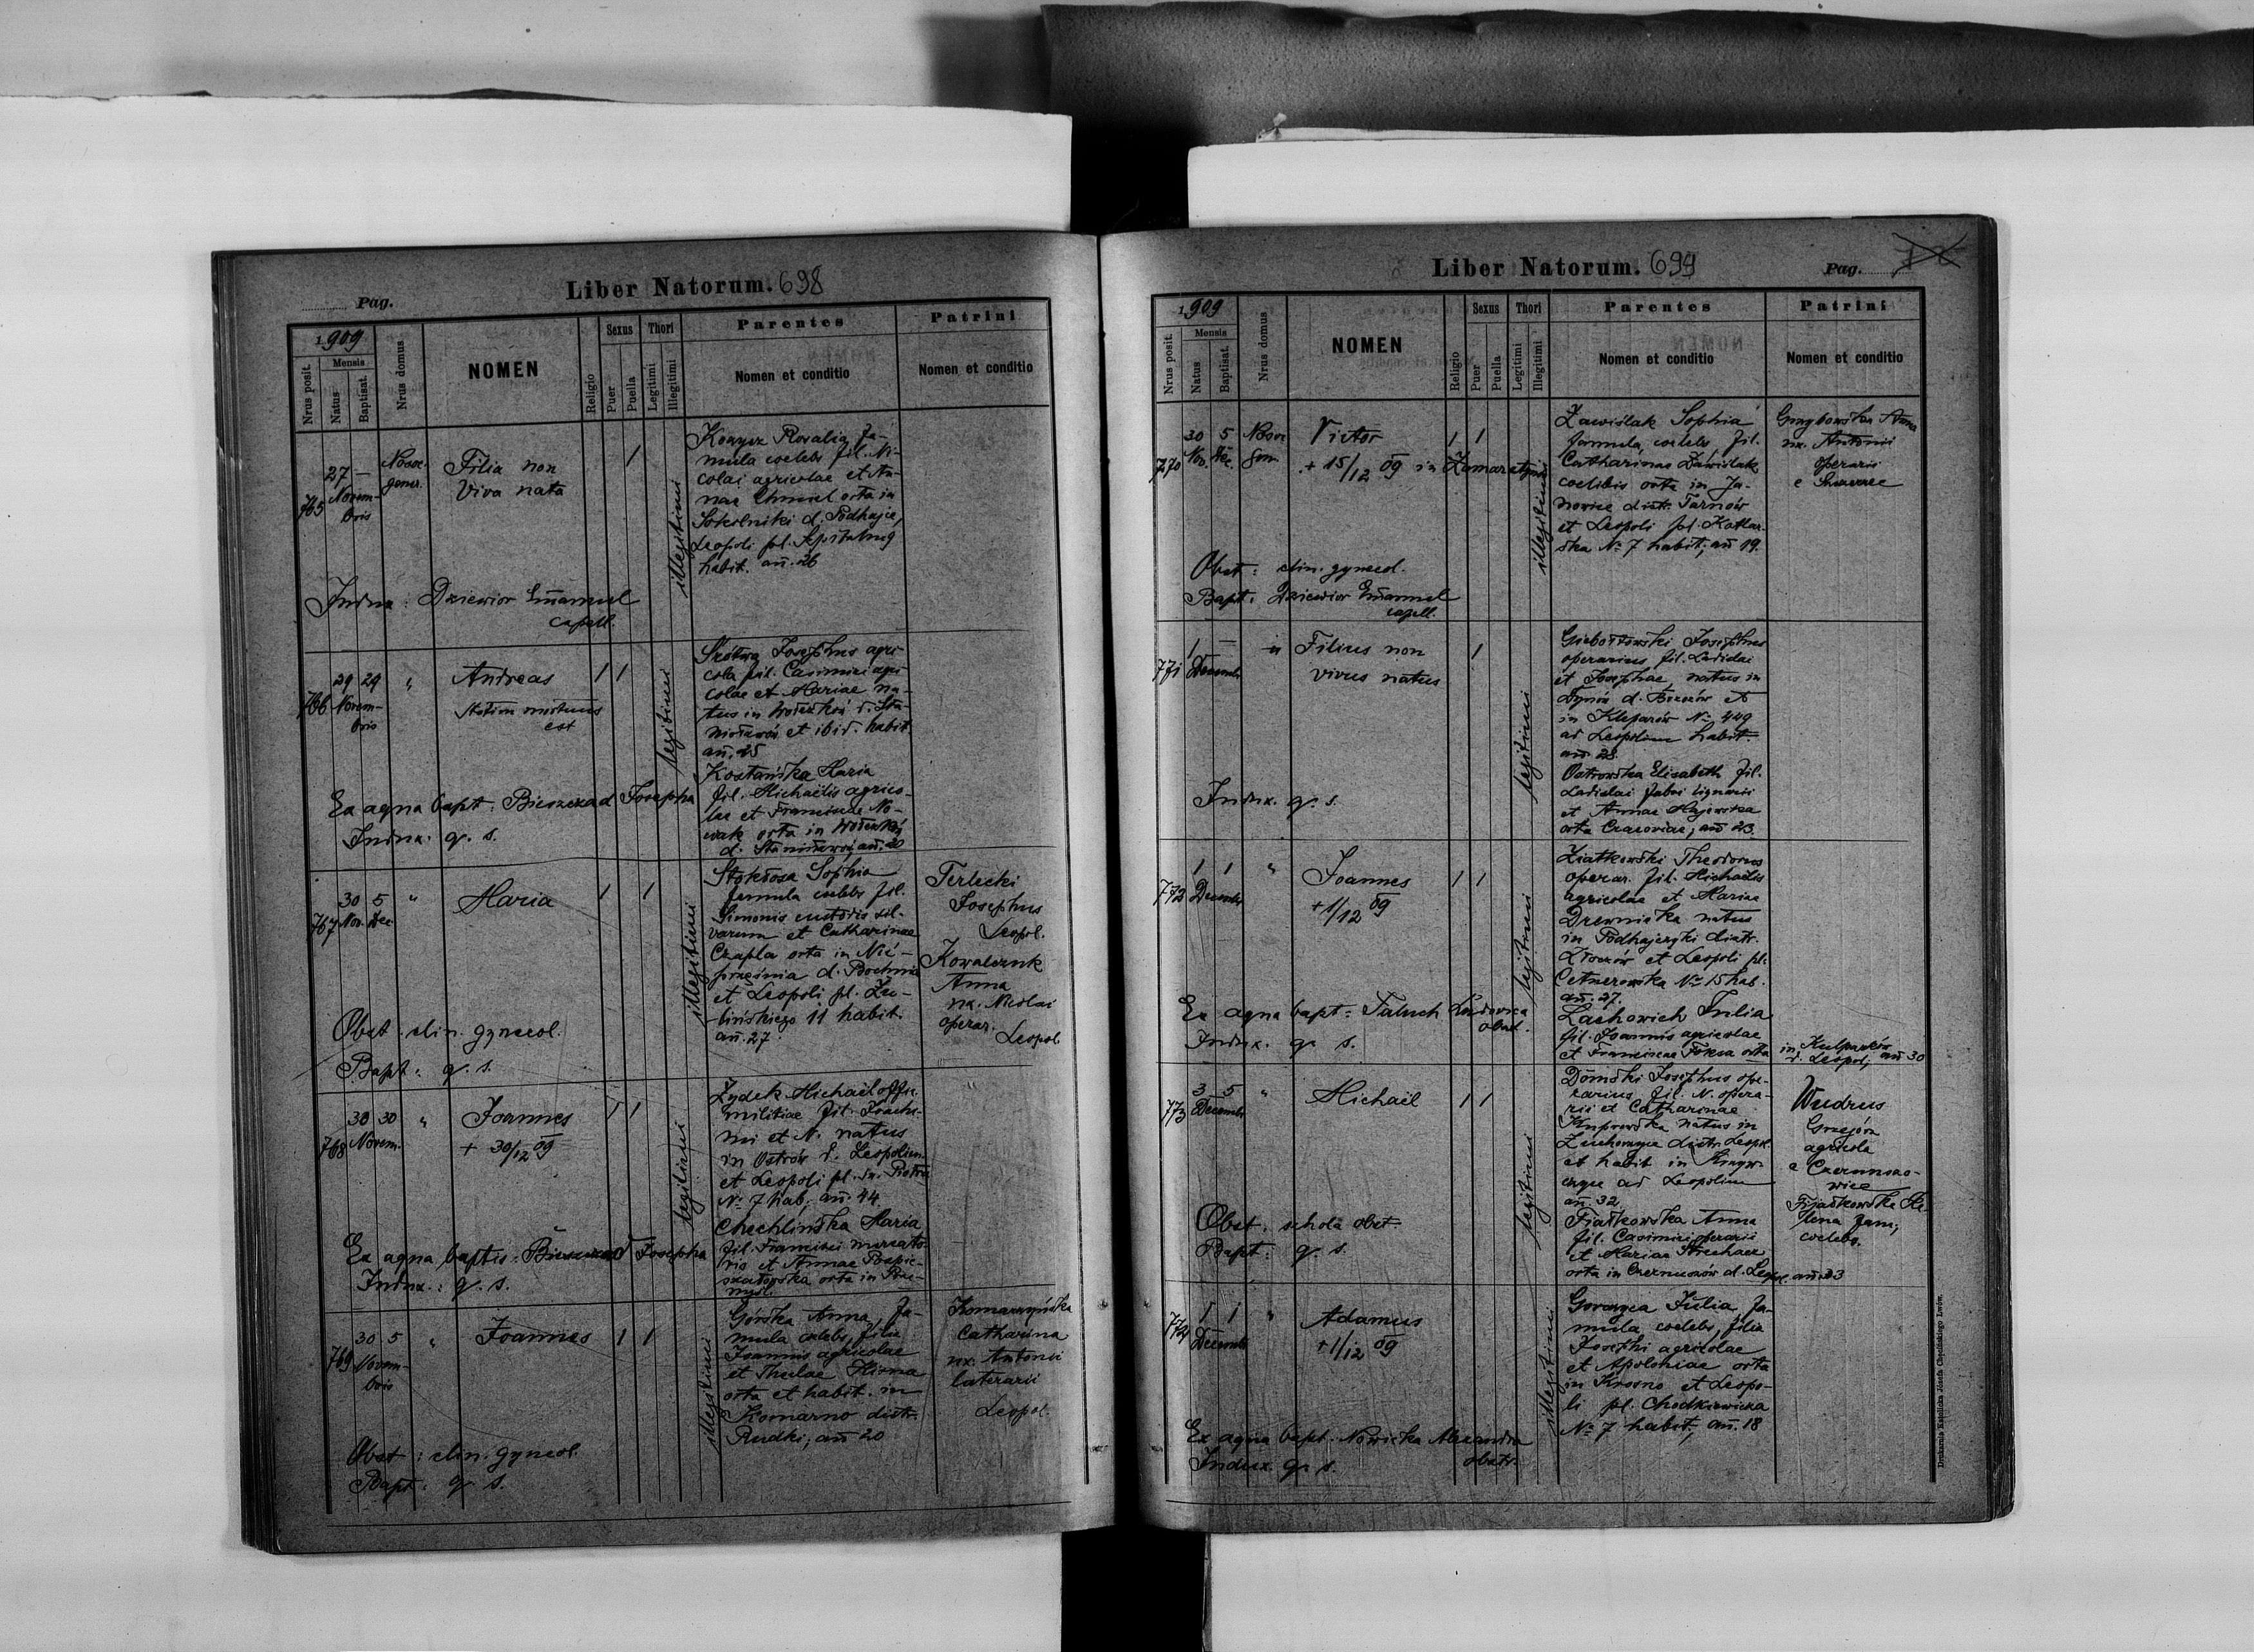 Pag.
Liber Natorum. 698
1909
Nrus posit.
Mensis
Natus
Baptisat.
Nrus domus
NOMEN
Religio
Sexus
Puer
Puella
Thori
Legitimi
Illegitimi
Parentes
Nomen et conditio
Patrini
Nomen et conditio
765
27 —
Novem-
bris
Nosoc.
gener.
Filia non
viva nata
1
illegitimi
Rosalia, fa-
mula coelebs fil. Ni-
colai agricolae et An-
nae Chmiel orta in
Sokolniki d. Podhajce,
Leopoli pl. Szpitalnej
habit. añ. 26
Indux: Dziewior Emanuel
capell.
766
29 29
Novem-
bris
"
Andreas
statim mortuus
est
1 1
legitimi
Josephus agri-
cola fil. Casimiri agri-
colae et Mariae na-
tus in d. Sta-
nisławów et ibid. habit.
añ. 25
Maria
fil. Michaëlis agrico-
lae et Franciscae No-
wak orta in
d. Stanisławów, añ. 20
Ex aqua bapt: Josepha
Indux. q. s.
767
30 5
Nov. Dec.
"
Maria
1 1
illegitimi
Stokłosa Sophia
famula coelebs fil.
Simonis custodis sil-
varum et Catharinae
Czapla orta in Nie-
d. Bochnia
et Leopoli pl. Zu-
lińskiego 11 habit.
añ. 27.
Terlecki
Josephus
Leopol.
Kowalczuk
Anna
ux. Nicolai
operar.
Leopol.
Obst. clin. gynecol.
Bapt: q. s.
768
30 30
Novem.
"
Joannes
+ 30/12 09
1 1
legitimi
Żydek Michaël offic.
militiae fil. Joachi-
mi et N. natus
in Ostrów d. Leopolien.
et Leopoli pl. św. Piotra
No 7 hab. añ. 44
Chechlińska Maria
fil. Francisci mercato-
ris et Annae
orta in Prze-
myśl.
Ex aqua baptis: Josepha
Indux.: q. s.
769
30 5
Novem-
bris
"
Joannes
1 1
illegitimi
Górska Anna, fa-
mula coelebs, filia
Joannis agricolae
et Theclae
orta et habit. in
Komarno distr.
Rudki, añ 20
Komarzyńska
Catharina
ux. Antonii
laterarii
Leopol.
Obst: clin. gynecol.
Bapt: q. s.
Liber Natorum. 699
Pag.
1909
Nrus posit.
Mensis
Natus
Baptisat.
Nrus domus
NOMEN
Religio
Sexus
Puer
Puella
Thori
Legitimi
Illegitimi
Parentes
Nomen et conditio
Patrini
Nomen et conditio
770
30 5
Nov. Dec.
Nosoc
gen.
Victor
+ 15/12 09 in
1 1
illegitimi
Zawiślak Sophia
famula, coelebs, fil.
Catharinae Zawiślak
coelibis orta in Ja-
nowice distr. Tarnów
et Leopoli pl. Kotlar-
ska No 7 habit; añ 19.
Grzybowska Anna
ux. Antonii
operarii
e
Obst: clin. gynecol.
Bapt: Dziewior Emanuel
capell.
771
1 —
Decembr.
"
Filius non
vivus natus
1
legitimi
Josephus
operarius, fil. Ladislai
et Josephae, natus in
Dynów d. Brzozów et
in Kleparów No 449
ad Leopolim habit.
añ. 28.
Ostrowska Elisabeth fil.
Ladislai fabri lignarii
et Annae Majewska
orta Cracoviae, añ 23.
Indux. q. s.
772
1 1
Decembr.
"
Joannes
+ 1/12 09
1 1
legitimi
Ziatkowski Theodorus
operar. fil. Michaëlis
agricolae et Mariae
Drewnicka natus
in Podhajczyki distr.
Złoczów et Leopoli pl.
Cetnerowska No 15 hab.
añ. 27.
Lachowich Julia
fil. Joannis agricolae
et Franciscae Foksa orta
in Kulparków
d. Leopoli, añ 30
Ex aqua bapt: Taluch Ludovica
obst.
Indux. q. s.
773
3 5
Decembr.
"
Michaël
1 1
legitimi
Josephus ope-
rarius, fil. N. opera-
rii et Catharinae
natus in
distr. Leopol.
et habit in Krzyw-
czyce ad Leopolim
añ. 32.
Fiałkowska Anna
fil. Casimiri operarii
et Mariae
orta in d. Leopol. añ. 33
Wudrus
Grzegórz
agricola
e
wice
Fijałkowska He-
lena fam,
coelebs.
Obst: schola obst.
Bapt: q. s.
774
1 1
Decembr.
"
Adamus
+ 1/12 09
illegitimi
Julia, fa-
mula coelebs, filia
Josephi agricolae
et Apoloniae orta
in Krosno et Leopo-
li pl. Chodkiewicza
No 7 habit; añ. 18
Ex aqua bapt. Nowicka Alexandra
obstr.
Indux. q. s.
Drukarnia Katolicka Józefa Chęcińskiego Lwów.